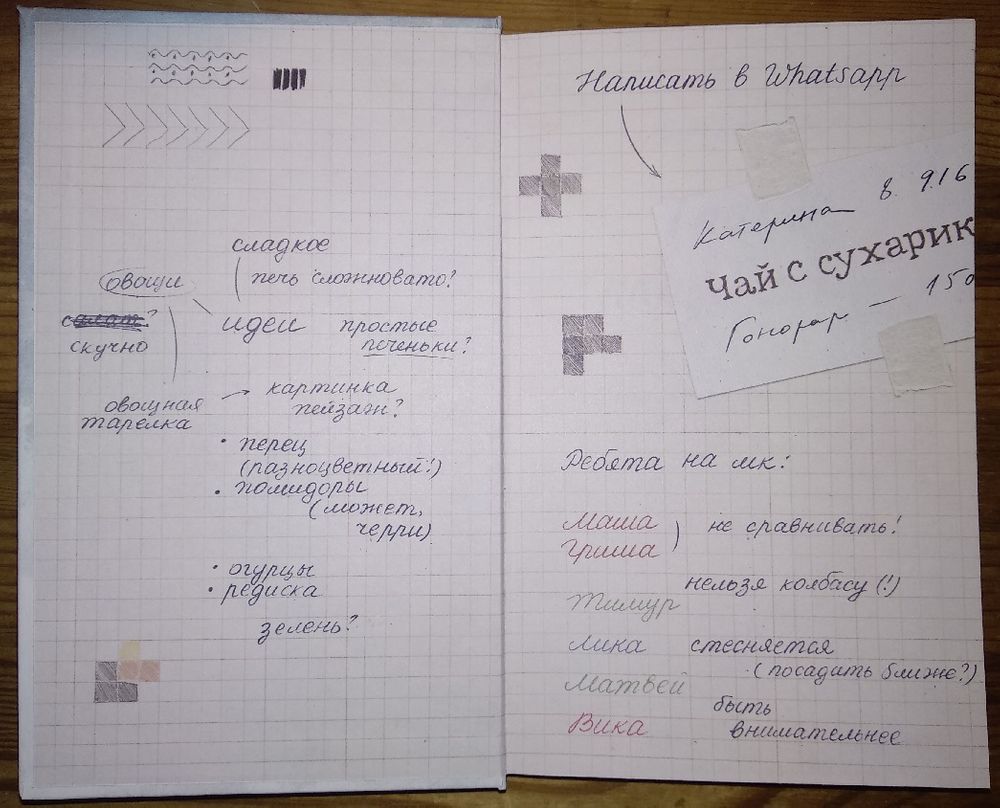 сладкое
овощи
печь сложновато?
салат?
скучно
идеи
простые
печеньки?
овощная
тарелка
картинка
пейзаж?
• перец
(разноцветный!)
• помидоры
(может,
черри)
• огурцы
• редиска
зелень?
Написать в Whatsapp
Катерина 8. 916
Чай с сухарик
Гонорар — 150
Ребята на мк:
Маша
Гриша
не сравнивать!
нельзя колбасу (!)
Тимур
Лика стесняется
(посадить ближе?)
Матвей
быть
Вика внимательнее